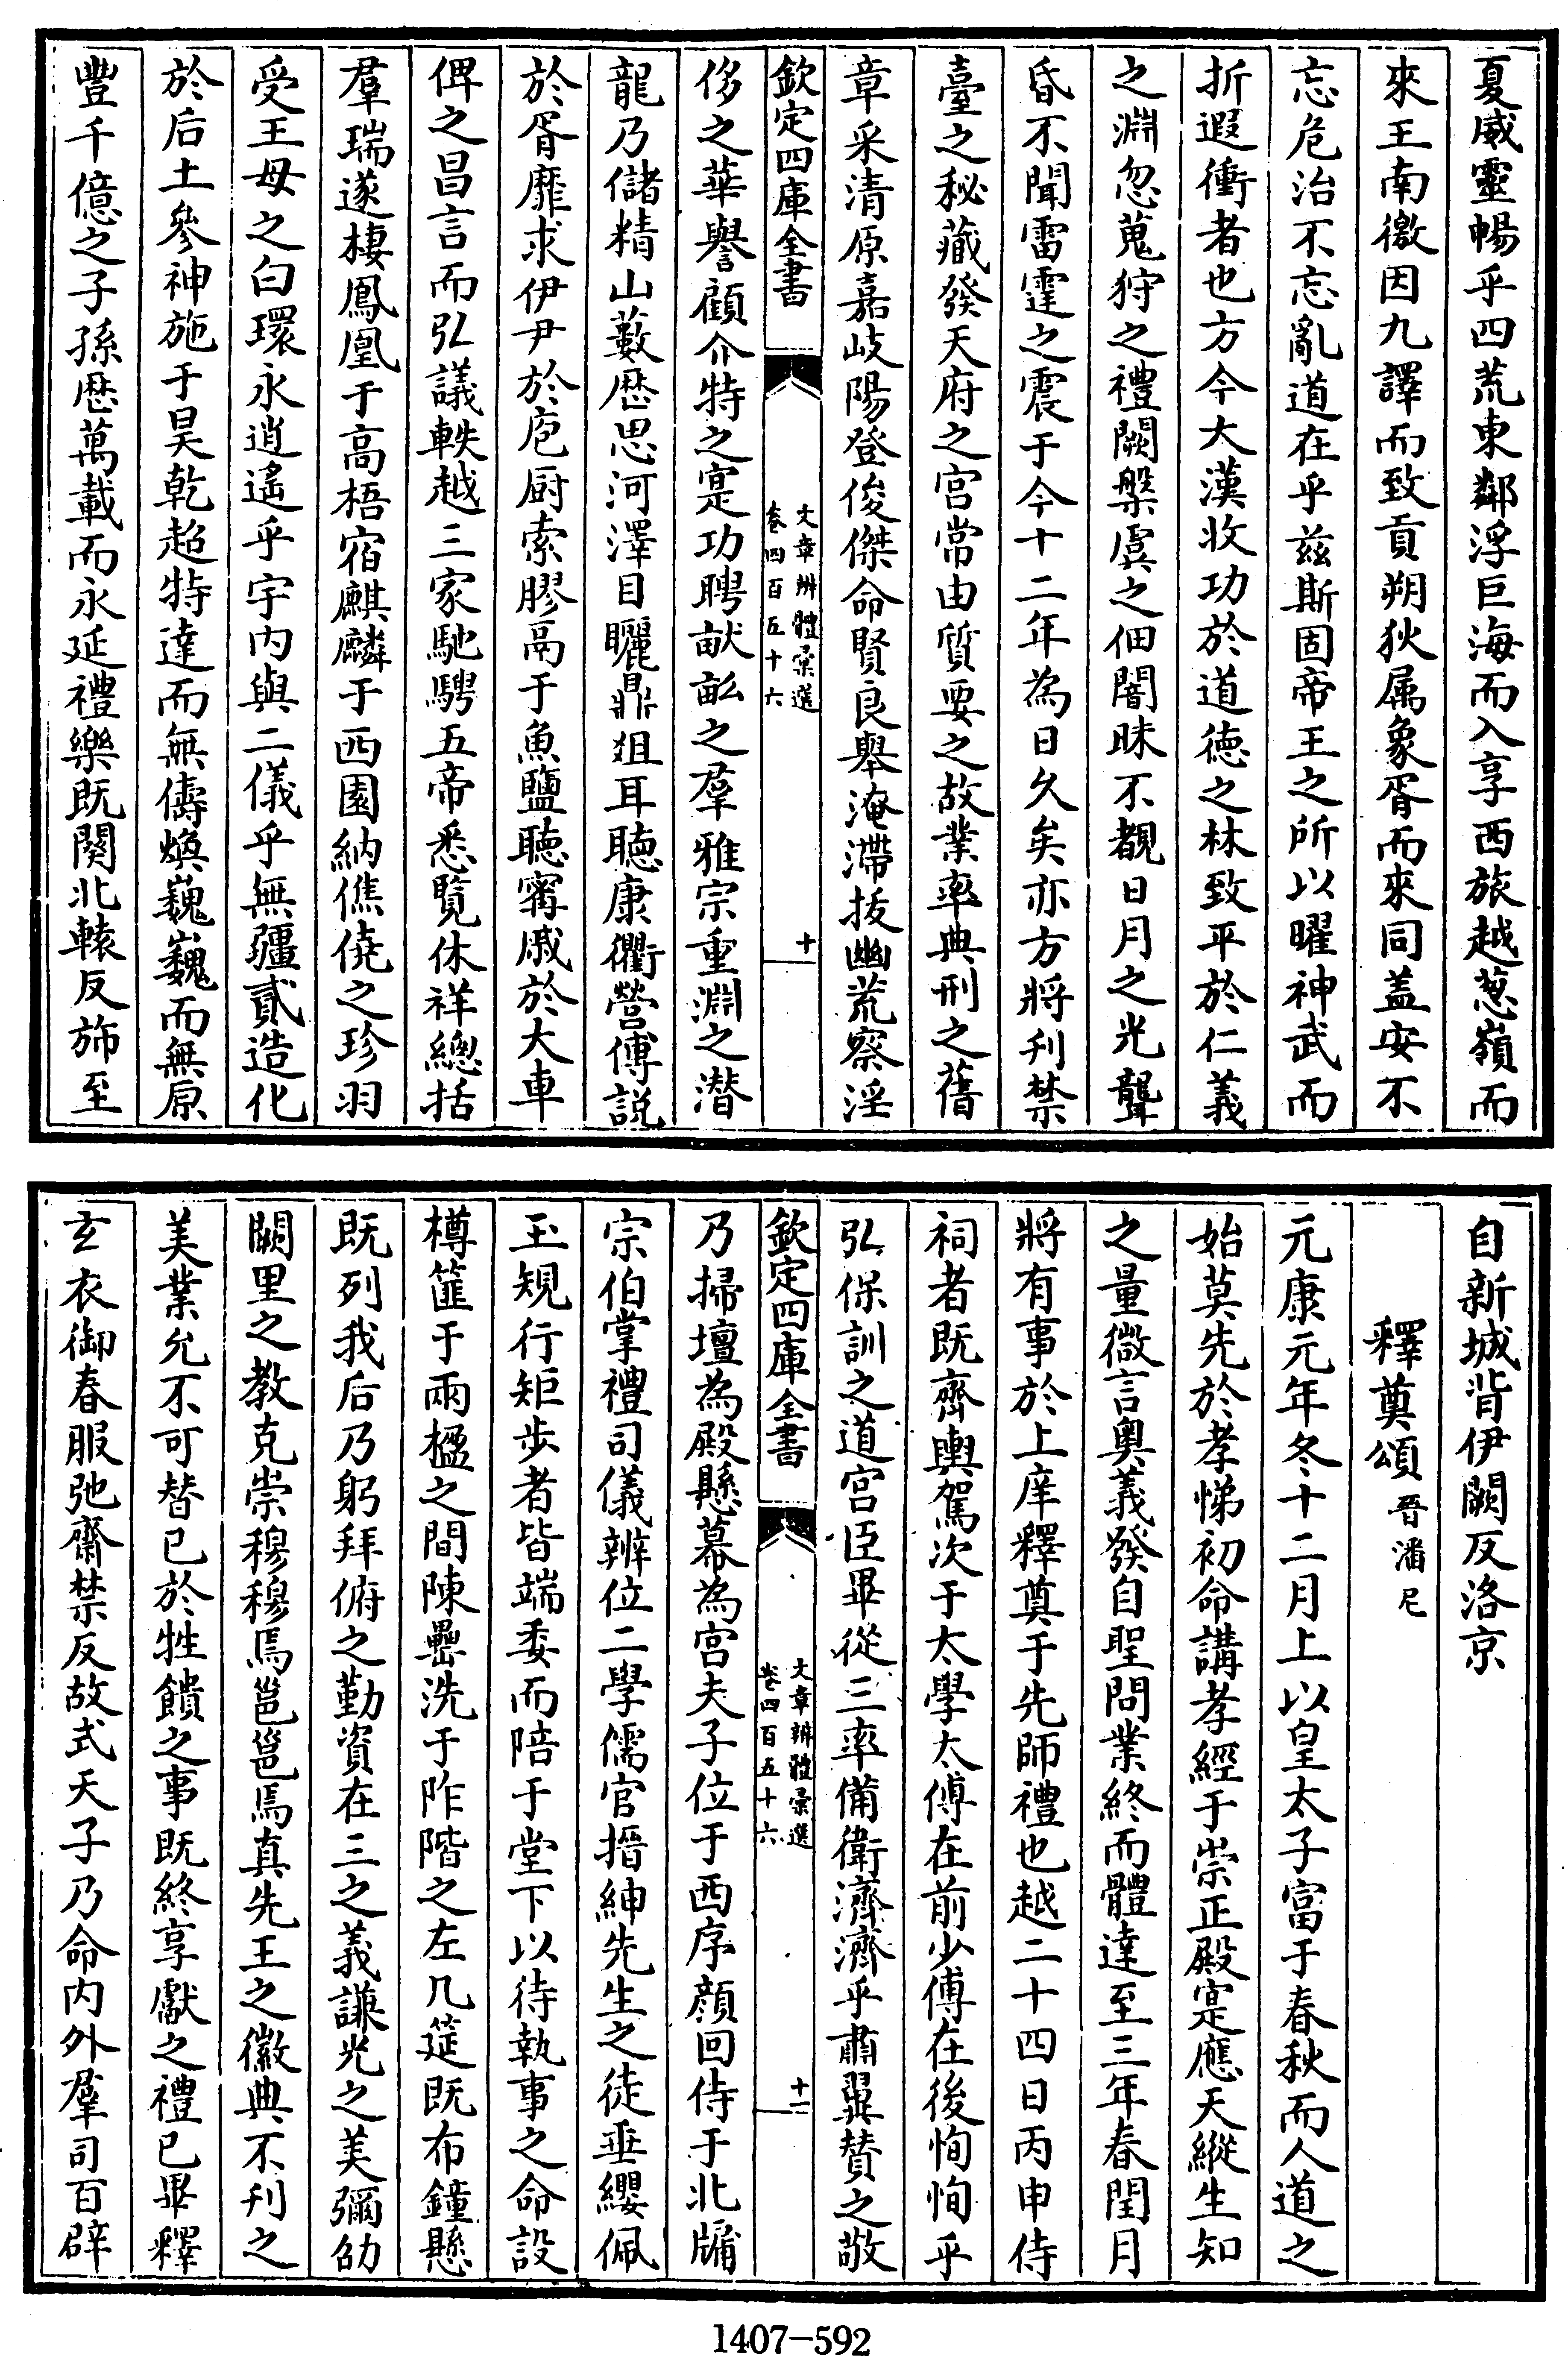 夏威靈暢乎四荒東鄰浮巨海而入享西旅越葱嶺而
來王南徼因九譯而致貢朔狄属象胥而來同盖安不
忘危治不忘亂道在乎兹斯固帝王之所以曜神武而
折遐衝者也方今大漢收功於道徳之林致平於仁義
之淵忽蒐狩之禮闕槃虞之佃闇昧不覩日月之光聾
昏不聞雷霆之震于今十二年為日久矣亦方將刋禁
臺之秘藏發天府之官常由質要之故業率典刑之舊
章采清原嘉岐陽登俊傑命賢良舉淹滯拔幽荒察淫
欽定四庫全書
文章辨體彙選
卷四百五十六
十
侈之華譽顧介特之寔功聘畎畝之羣雅宗重淵之潜
龍乃儲精山藪厯思河澤目矖鼎俎耳聽康衢營傅説
於胥靡求伊尹於庖厨索膠鬲于魚鹽聴甯戚於大車
俾之昌言而弘議軼越三家馳騁五帝悉覧休祥總括
羣瑞遂棲鳳凰于高梧宿麒麟于西園納僬僥之珍羽
受王母之白環永逍遙乎宇内與二儀乎無疆貳造化
於后土參神施于昊乾超特達而無儔煥巍巍而無原
豐千億之子孫厯萬載而永延禮樂既闋北轅反斾至
自新城背伊闕反洛京
釋奠頌 晉潘尼
元康元年冬十二月上以皇太子富于春秋而人道之
始莫先於孝悌初命講孝經于崇正殿寔應天縱生知
之量微言奥義發自聖問業終而體達至三年春閏月
將有事於上庠釋奠于先師禮也越二十四日丙申侍
祠者既齊輿駕次于太學太傅在前少傅在後恂恂乎
弘保訓之道宫臣畢從三率備衛濟濟乎肅翼賛之敬
欽定四庫全書
文章辨體彙選
卷四百五十六
十一
乃掃壇為殿懸幕為宫夫子位于西序顔回侍于北牖
宗伯掌禮司儀辨位二學儒官搢紳先生之徒垂纓佩
玉規行矩歩者皆端委而陪于堂下以待執事之命設
樽篚于兩楹之間陳罍洗于阼階之左几筵既布鐘懸
既列我后乃躬拜俯之勤資在三之義謙光之美彌劭
闕里之教克崇穆穆焉邕邕焉真先王之徽典不刋之
美業允不可替已於牲饋之事既終享獻之禮已畢釋
玄衣御春服弛齋禁反故式天子乃命内外羣司百辟
1407-592